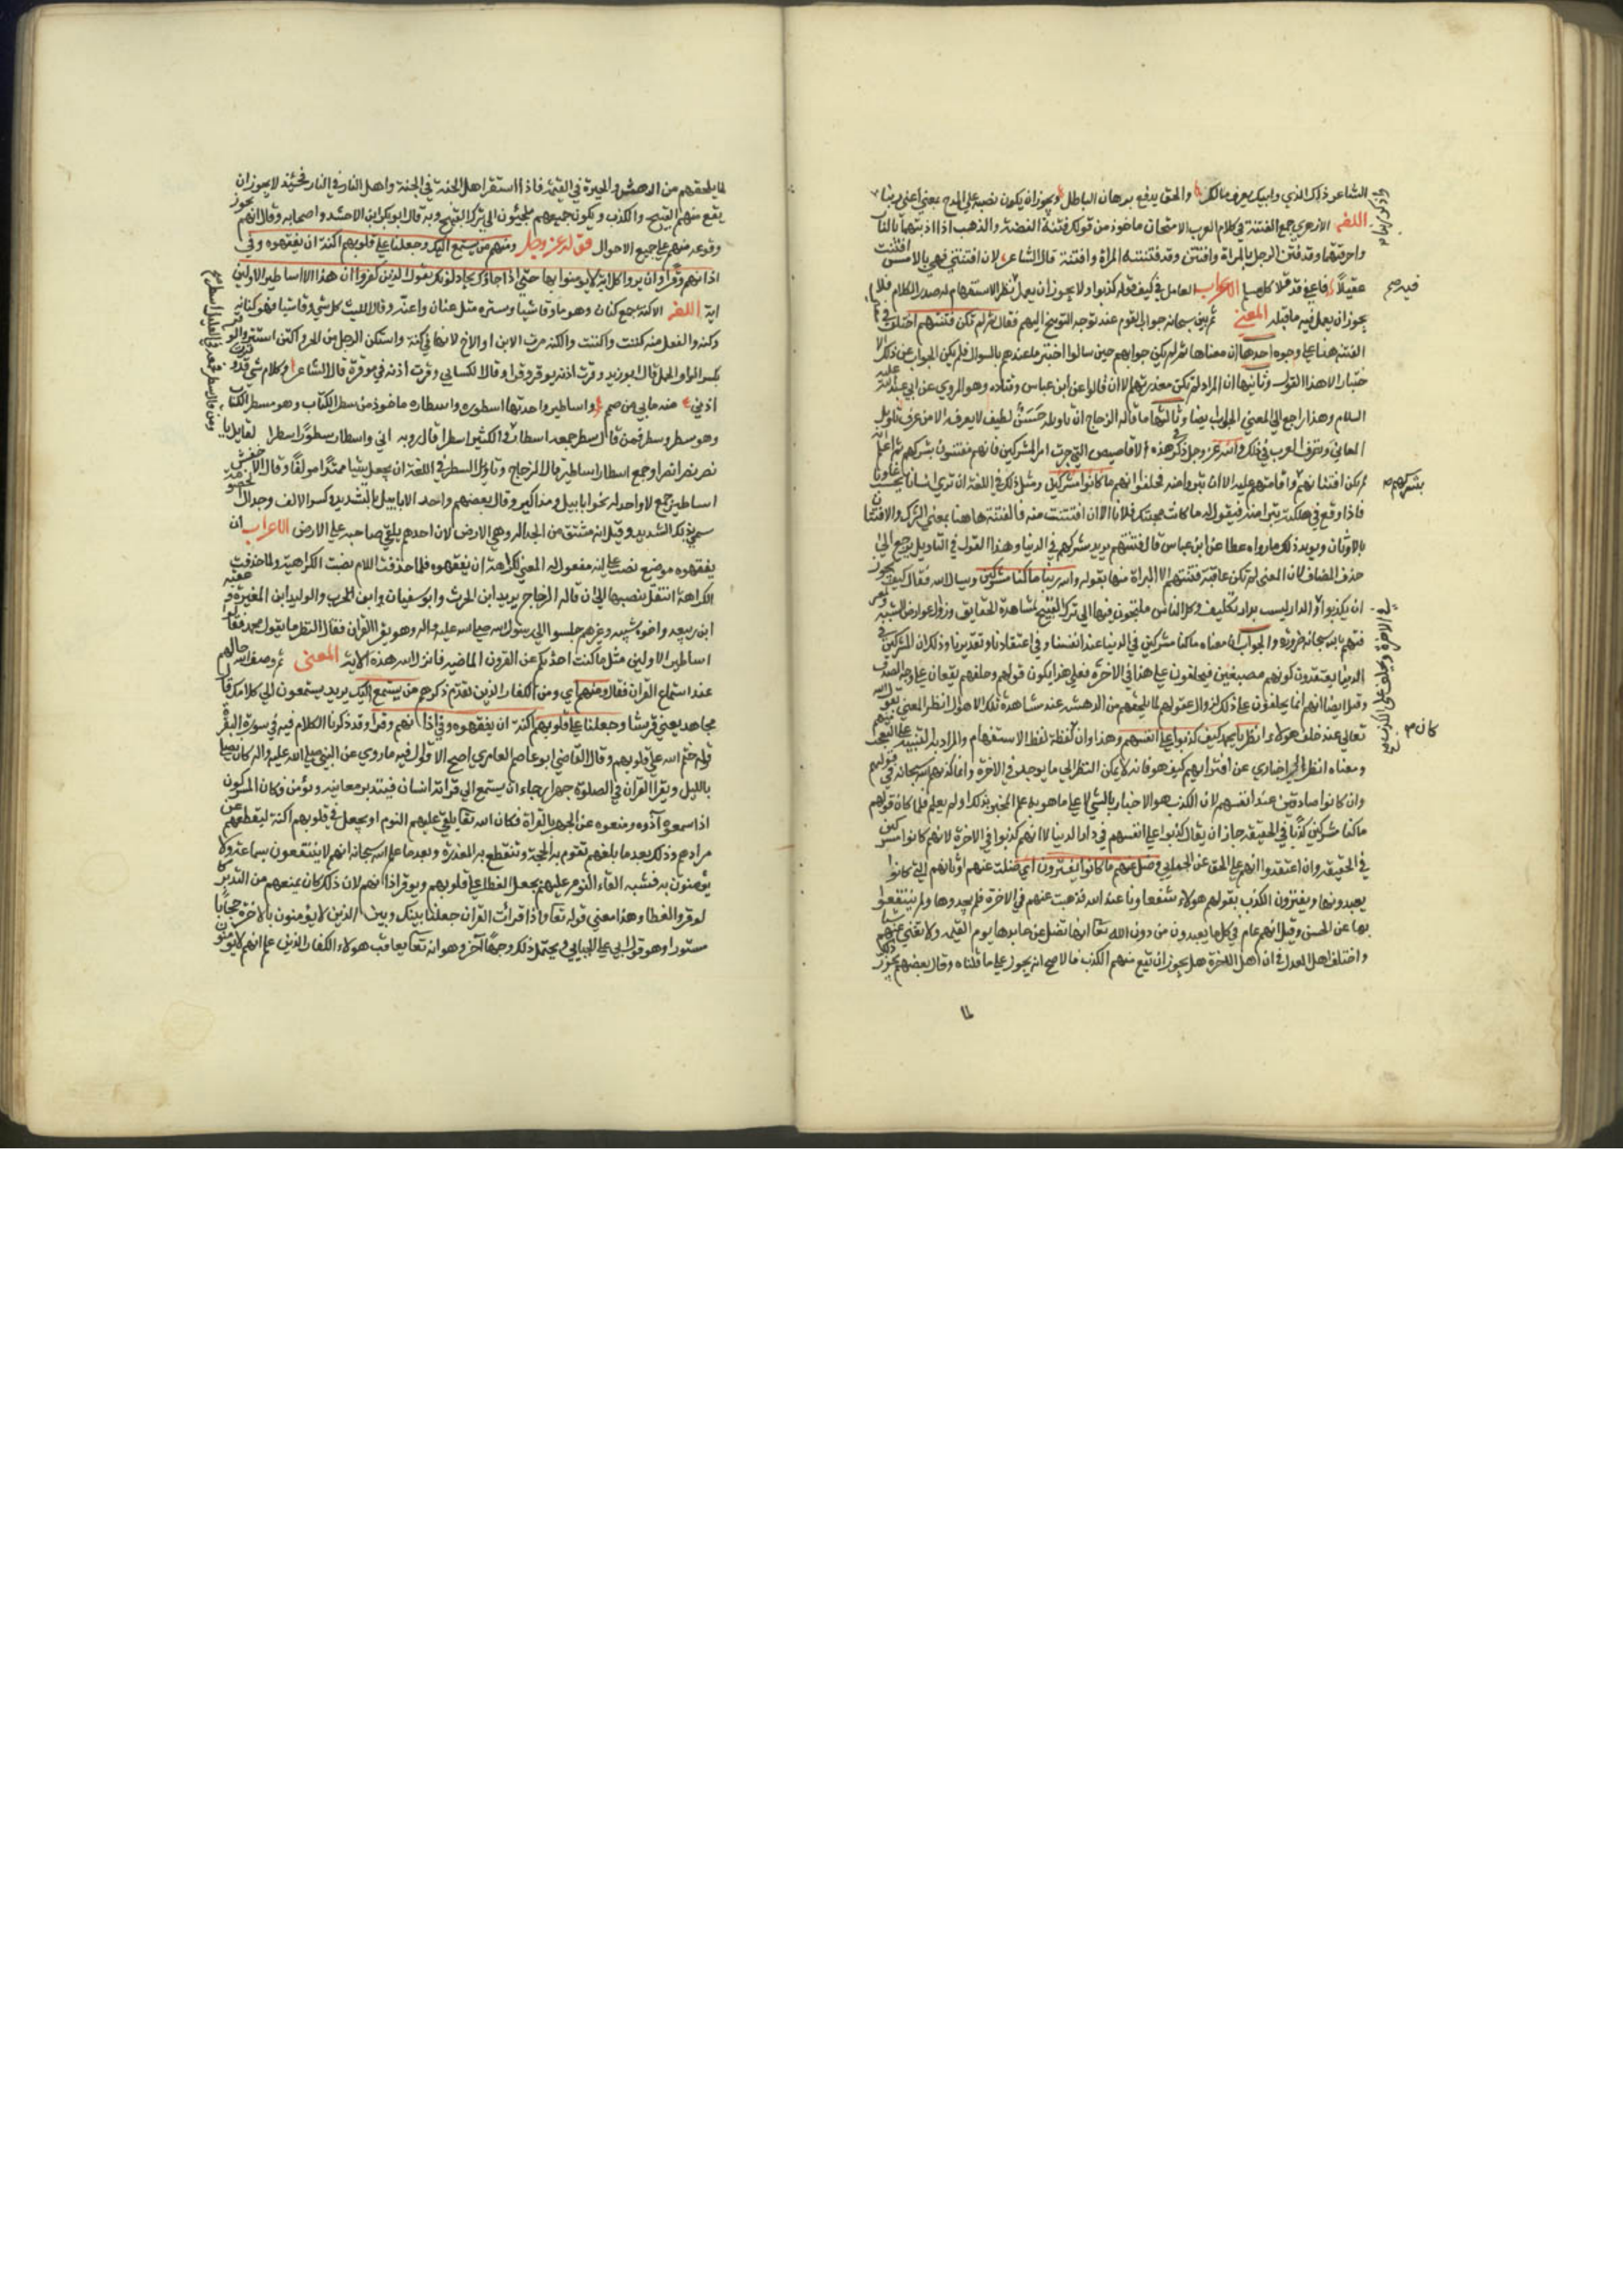 الشاعر ذاك الذي وابيك يعرف مالك والحق يدفع برهان الباطل ويجوز ان يكون نصبه على المدح بمعنى اعني ربنا
اللغه الازهري جمع الفتنة في كلام العرب الامتحان ماخوذ من قولك فتنت الفضة والذهب اذا اذبتهما بالنار
واحرقتهما وقد فتن الرجل بالمراة وافتتن وقد فتنته المراة وافتنته قال الشاعر لان افتنتني فهي بالامس افتنت
عقيلا فامسى قد قلا كل مسلم الاعراب العامل في كيف قوله كذبوا ولا يجوز ان يعمل انظر الاستفهام له صدر الكلام فلا
يجوز ان يعمل فيه ما قبله المعنى ثم بين سبحانه جواب القوم عند توجه التوبيخ اليهم فقال ثم لم تكن فتنتهم اختلف في
الفتنة هنا على وجوه احدها ان معناها ثم لم يكن جوابهم حين سالوا اختبر ما عندهم بالسوال فلم يكن الجواب عن ذلك الا
ختبار الا هذا القول وثانيها ان المراد لم تكن معذرتهم الا ان قالوا عن ابن عباس وقتادة وهو المروي عن ابي عبد الله عليه
السلام وهذا راجع الى معنى الجواب ايضا وثالثها ما قاله الزجاج ان تاويله حسن لطيف لا يعرفه الا من عرف تاويل
المعاني وتصرف العرب في ذلك والله عز وجل ذكر في هذه الاقاصيص التي جرت امر المشركين فانهم مفتتنون بشركهم ثم اعلم انه
لم يكن افتتانهم واقامتهم عليه الا ان تبروا منه فحلفوا انهم ما كانوا مشركين ومثل ذلك في اللغة ان ترى انسانا يحب غاويا
فاذا وقع في هلكة تبرا منه فيقول له ما كانت محبتك فلانا الا ان افتتنت منه فالفتنة هاهنا بمعنى الشرك والافتتان
بالاوثان ويويد ذلك ما رواه عطا عن ابن عباس قال فتنتهم يريد شركهم في الدنيا وهذا القول في التاويل يرجع الى
حذف المضاف كان المعنى لم تكن عاقبة فتنتهم الا البراة منها بقوله والله ربنا ما كنا مشركين ويسال فقال كيف يجوز
ان يكذبوا في الدار ليست بدار تكليف وكل الناس ملجئون فيها الى ترك القبيح لمشاهدة الحقايق وزوال عوارض الشبه
فتهم بالله سبحانه ضرورة والجواب ان معناه ما كنا مشركين في الدنيا عند انفسنا وفي اعتقادنا وتقديرنا وذلك ان المشركين في
الدنيا يعتقدون كونهم مصيبين فيحلفون على هذا في الاخرة فعلى هذا يكون قولهم وحلفهم يقعان على وجه الصدق
وقيل ايضا انهم انما يحلفون على ذلك لزوال عقولهم لما يلحقهم من الدهشة عند مشاهدة تلك الاهوال انظر المعنى يقول الله
تعالى عند حلف هولاء انظر يا محمد كيف كذبوا على انفسهم وهذا وان لفظه لفظ الاستفهام والمراد به التنبيه على التعجب منهم
ومعناه انظر الى اخباري عن افترايهم كيف هو فانه لا يمكن النظر الى ما يوجد في الاخرة وانما كذبهم الله سبحانه في قولهم
وان كانوا صادقين عند انفسهم لان الكذب هو الاخبار بالشي لا على ما هو به علم المخبر بذلك او لم يعلم فلما كان قولهم
ما كنا مشركين كذبا في الحقيقة جاز ان يقال كذبوا على انفسهم في دار الدنيا لا انهم كذبوا في الاخرة لانهم كانوا مشركين
في الحقيقة وان اعتقدوا انهم على الحق عن الجبائي وضل عنهم ما كانوا يفترون اي ضلت عنهم اوثانهم التي كانوا
يعبدونها ويفترون الكذب بقولهم هولاء شفعاونا عند الله فذهبت عنهم في الاخرة فلم يجدوها ولم ينتفعوا
بها عن الحسن وقيل انه عام في كل ما يعبدون من دون الله تعالى انها تضل عن عابدها يوم القيمة ولا تغني عنهم شيا
واختلف اهل العدل في ان اهل الاخرة هل يجوز ان تقع منهم الكذب فالاصح انه يجوز على ما قلناه وقال بعضهم يجوز ذلك
لما
لما يلحقهم من الدهش والحيرة في القيمة فاذا استقر اهل الجنة في الجنة واهل النار في النار فحينئذ لا يجوز ان
يقع منهم القبيح والكذب ويكون جميعهم ملجئون الى ترك القبيح وبه قال ابو بكر ابن الاخشد واصحابه وقال انهم يجوز
وقوعه منهم على جميع الاحوال قوله عز وجل ومنهم من يستمع اليك وجعلنا على قلوبهم اكنة ان يفقهوه وفي
اذانهم وقرا وان يروا كل اية لا يومنوا بها حتى اذا جاؤك يجادلونك يقول الذين كفروا ان هذا الا اساطير الاولين
اية اللغه الاكنة جمع كنان وهو ما وقا شيا وستره مثل عنان واعنة وقال الليث كل شي وقا شيا فهو كنانه
وكنه والفعل منه كننت واكننت والكنة مرت الابن او الاخ لانها في كنه واستكن الرجل من الحر واكتن استتر والوقر
بكسر الواو الحمل قال ابو زيد وقرت اذنه يوقر وقرا وقال الكسايي وقرت اذنه فهي موقرة قال الشاعر وكلام سي قد وقرت
اذني منه مابي من صمم واساطير واحدتها اسطوره واسطاره ماخوذ من سطر الكتاب وهو مسطر الكتاب
وهو سطر وسطر فمن قال سطر جمعه اسطار في الكثير اسطرا قال روبه اني واسطار سطرن سطرا لقايل يا
نصر نصرا نصرا وجمع اسطار اساطير قال الزجاج وتاويل السطر في اللغة ان يجعل شيا ممتدا مولفا وقال الاخفش
اساطير جمع لا واحد له نحو ابابيل ومذاكير وقال بعضهم واحد الابابيل ابيل بالتشديد وكسر الالف وجدال الخصومة
سمي بذلك لشدته وقيل انه مشتق من الجدالة وهي الارض لان احدهم يلقي صاحبه على الارض الاعراب ان
يفقهوه موضع نصب على انه مفعول له المعنى لكراهة ان يفقهوه فلما حذفت اللام نصبت الكراهية ولما حذفت
الكراهة انتقل نصبها الى ان قاله الزجاج يريد ابن الحرث وابو سفيان وابن الحرب والوليد ابن المغيرة وعتبة
ابن ربيعه واخوه شيبه وغيرهم جلسوا الى رسول الله صلى الله عليه واله وهو يقرا القران فقال للنظر ما يقول محمد فقال
اساطير الاولين مثل ما كنت احدثكم عن القرون الماضيه فانزل الله هذه الاية المعنى ثم وصف الله حالهم
عند استماع القران فقال ومنهم اي ومن الكفار الذين تقدم ذكرهم من يستمع اليك يريد يستمعون الى كلامك قال
مجاهد يعني قريشا وجعلنا على قلوبهم اكنة ان يفقهوه وفي اذانهم وقرا وقد ذكرنا الكلام فيه في سورة البقرة
قوله ختم الله على قلوبهم وقال القاضي ابو عاصم العامري اصح الاقوال فيه ما روي عن النبي صلى الله عليه واله كان يصلي
بالليل ويقرا القران في الصلوة جهرا رجاء ان يستمع الى قراته انسان فيتدبر معانيه ويؤمن فكان المشركون
اذا سمعوه آذوه ومنعوه عن الجهر بالقراة فكان الله تعالى يلقي عليهم النوم او يجعل في قلوبهم اكنة ليقطعهم عن
مرادهم وذلك بعد ما بلغهم تقوم به الحجة وتنقطع به المعذرة وبعد ما علم الله سبحانه انهم لا ينتفعون بسماعه ولا
يؤمنون به فشبه القاء النوم عليهم بجعل الغطا على قلوبهم وبوقر اذانهم لان ذلك كان يمنعهم من التدبر كا
لوقر والغطا وهذا معنى قوله تعالى واذا قرات القران جعلنا بينك وبين الذين لا يؤمنون بالاخرة حجابا
مستورا وهو قول ابي علي الجبايي ويحتمل ذلك وجها آخر وهو انه تعالى يعاقب هولاء الكفار الذين علم انهم لا يومنون